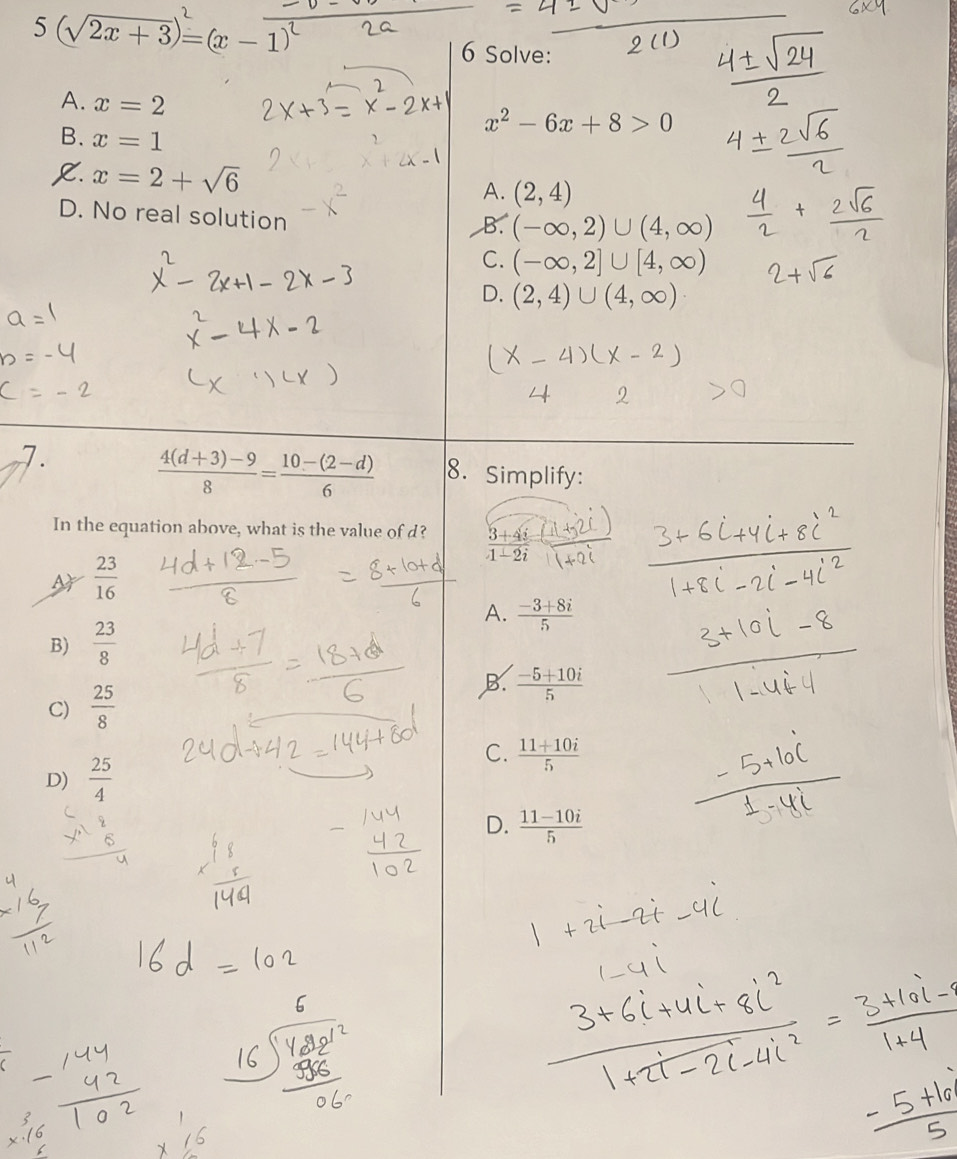 2a
= 4 ± √
2(1)
6x4
5 (√2x + 3)² = (x − 1)²
A. x = 2
B. x = 1
C. x = 2 + √6
D. No real solution
2x+3 = x² − 2x+1
x² + 2x − 1
− x²
x² − 2x+1 − 2x − 3
x² − 4x − 2
(x )(x )
a = 1
b = −4
c = −2
6 Solve:
x² − 6x + 8 > 0
A. (2, 4)
B. (−∞, 2) ∪ (4, ∞)
C. (−∞, 2] ∪ [4, ∞)
D. (2, 4) ∪ (4, ∞)
(x − 4)(x − 2)
4 2 >0
4 ± √24
2
4 ± 2√6
2
4/2 + 2√6/2
2+√6
7.
4(d+3)−9 / 8 = 10−(2−d) / 6
In the equation above, what is the value of d?
A) 23/16
B) 23/8
C) 25/8
D) 25/4
4d+12−5 / 8 = 8+10+d / 6
4d+7 / 8 = 18+d / 6
24d+42 = 144+8d
144
− 42
102
16d = 102
16
7
112
144
− 42
102
6
16
8. Simplify:
3+4i / 1−2i (1+2i) / 1+2i
A. −3+8i / 5
B. −5+10i / 5
C. 11+10i / 5
D. 11−10i / 5
3+6i+4i+8i²
1+8i−2i−4i²
3+10i −8
1−4i+4
−5+10i
1−4i
1 +2i−2i −4i
1−4i
3+6i+4i+8i² / 1+2i−2i−4i² = 3+10i−8 / 1+4
−5+10i
5